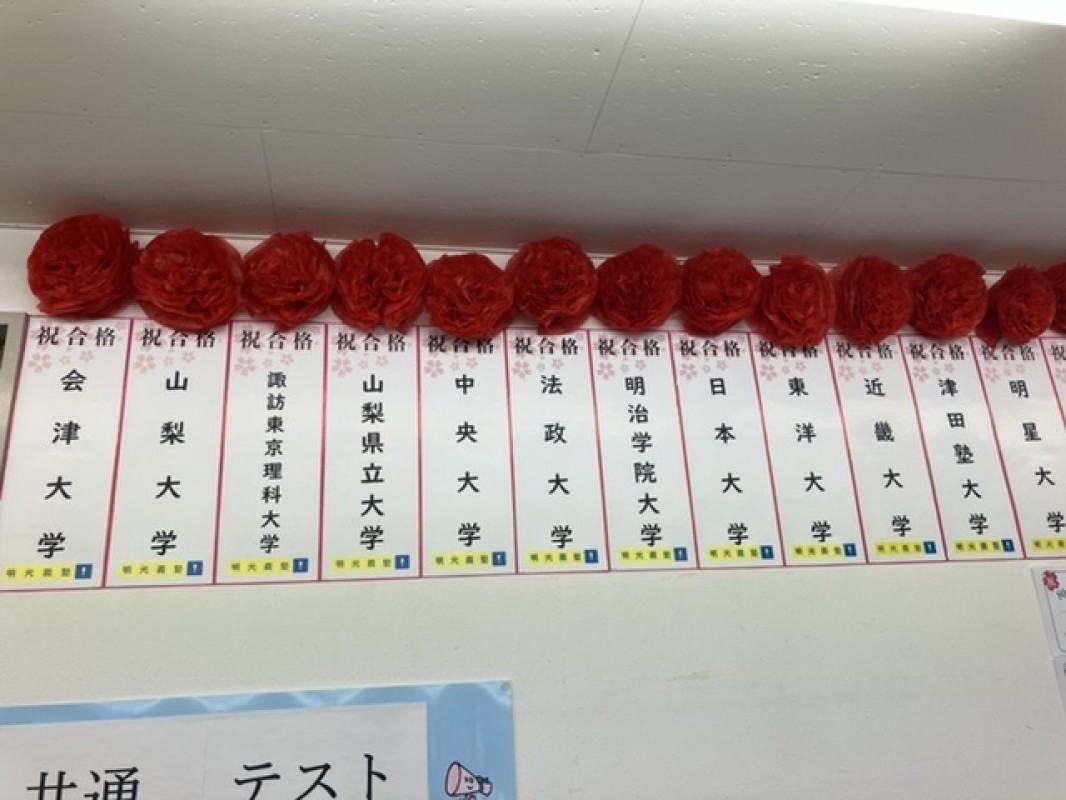 祝合格
会津大学
明光義塾
祝合格
山梨大学
明光義塾
祝合格
諏訪東京理科大学
明光義塾
祝合格
山梨県立大学
明光義塾
祝合格
中央大学
明光義塾
祝合格
法政大学
明光義塾
祝合格
明治学院大学
明光義塾
祝合格
日本大学
明光義塾
祝合格
東洋大学
明光義塾
祝合格
近畿大学
明光義塾
祝合格
津田塾大学
明光義塾
祝合格
明星大学
明光義
祝
共通 テスト